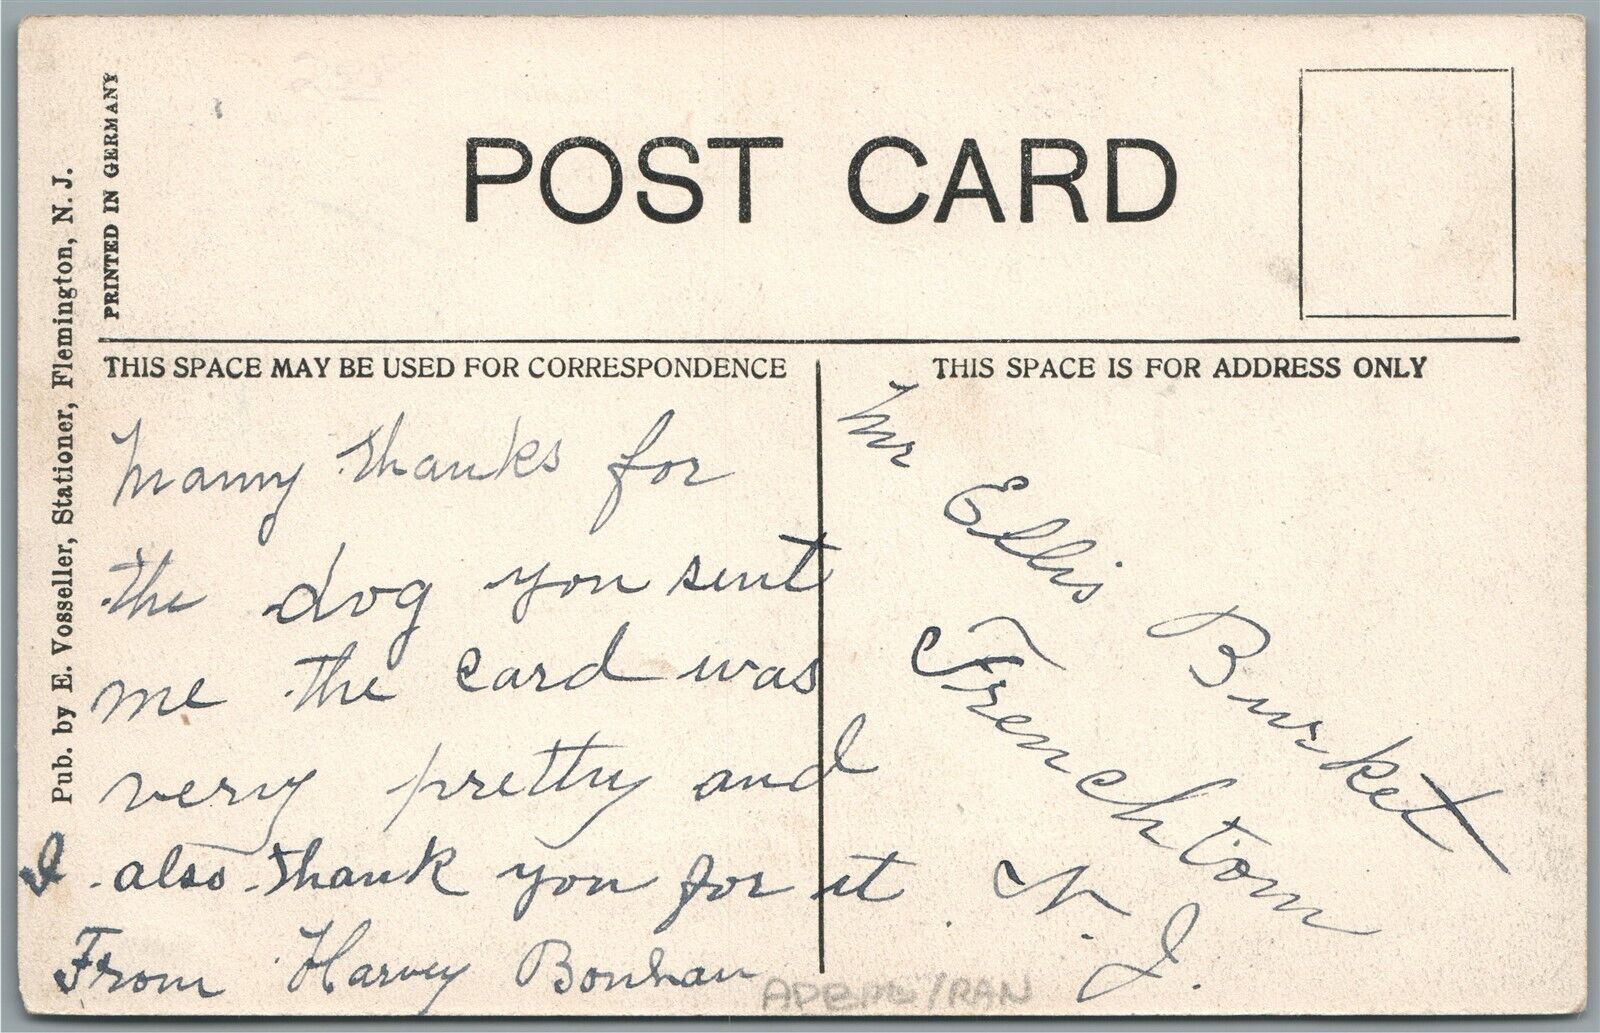 POST CARD
PRINTED IN GERMANY
Pub. by E. Vosseller, Stationer, Flemington, N. J.
THIS SPACE MAY BE USED FOR CORRESPONDENCE
Manny thanks for
the dog you sent
me the card was
very pretty and
I also thank you for it.
From Harvey Bonham
THIS SPACE IS FOR ADDRESS ONLY
Mr
Ellis Burket
Frenchtown
N. J.